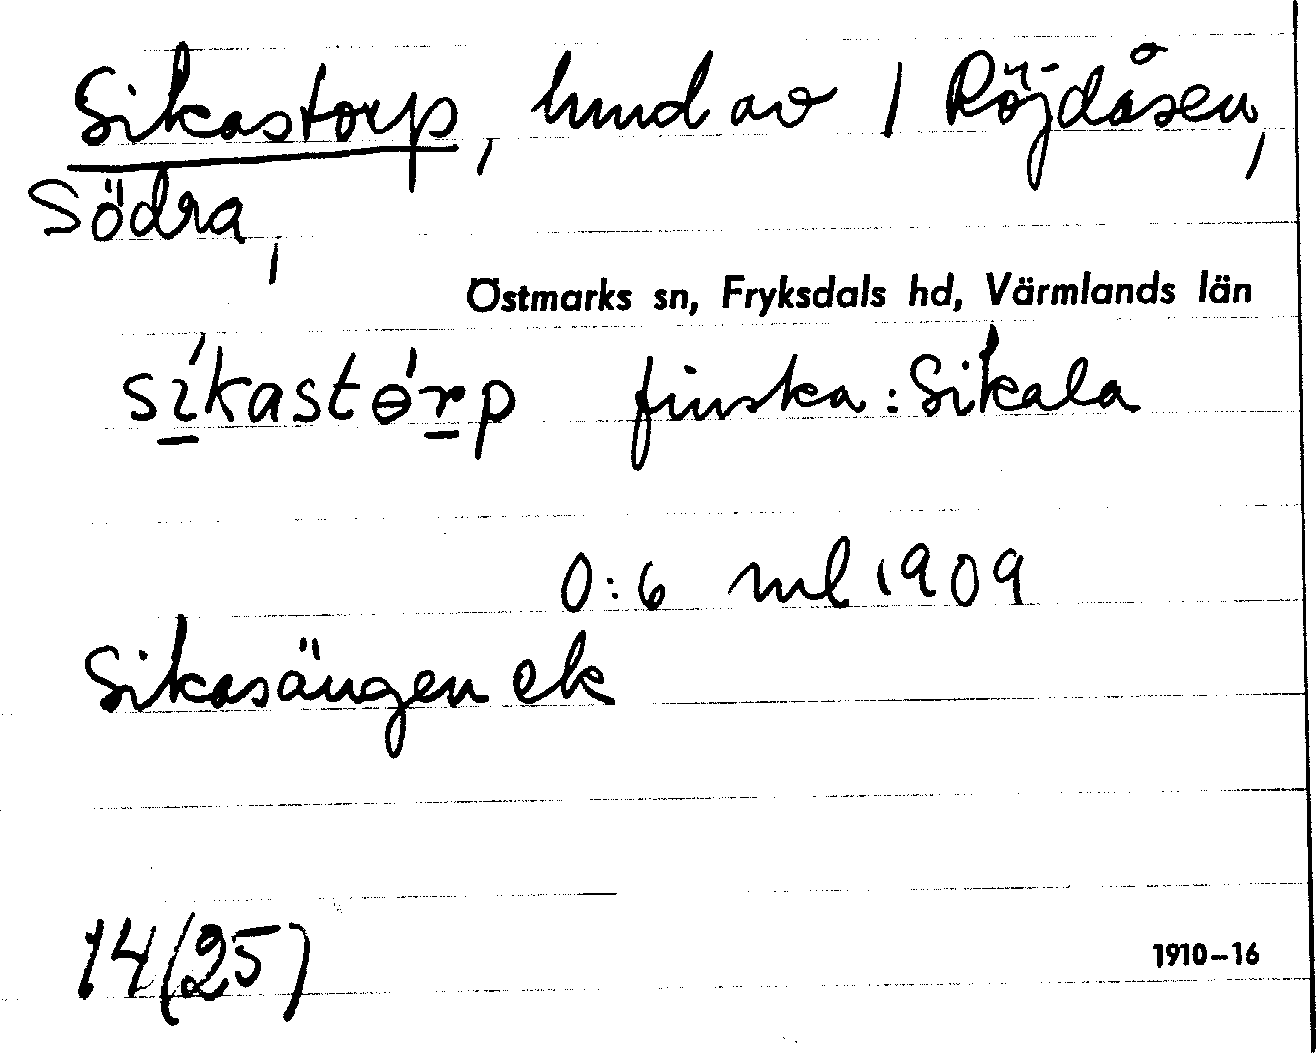 Sikastorp, hmd av 1 Röjdåsen,
Södra,
Östmarks sn, Fryksdals hd, Värmlands län
síkastɵ́rp finska: Sikala
0:6 ml 1909
Sikasängen ek
14(25)
1910–16